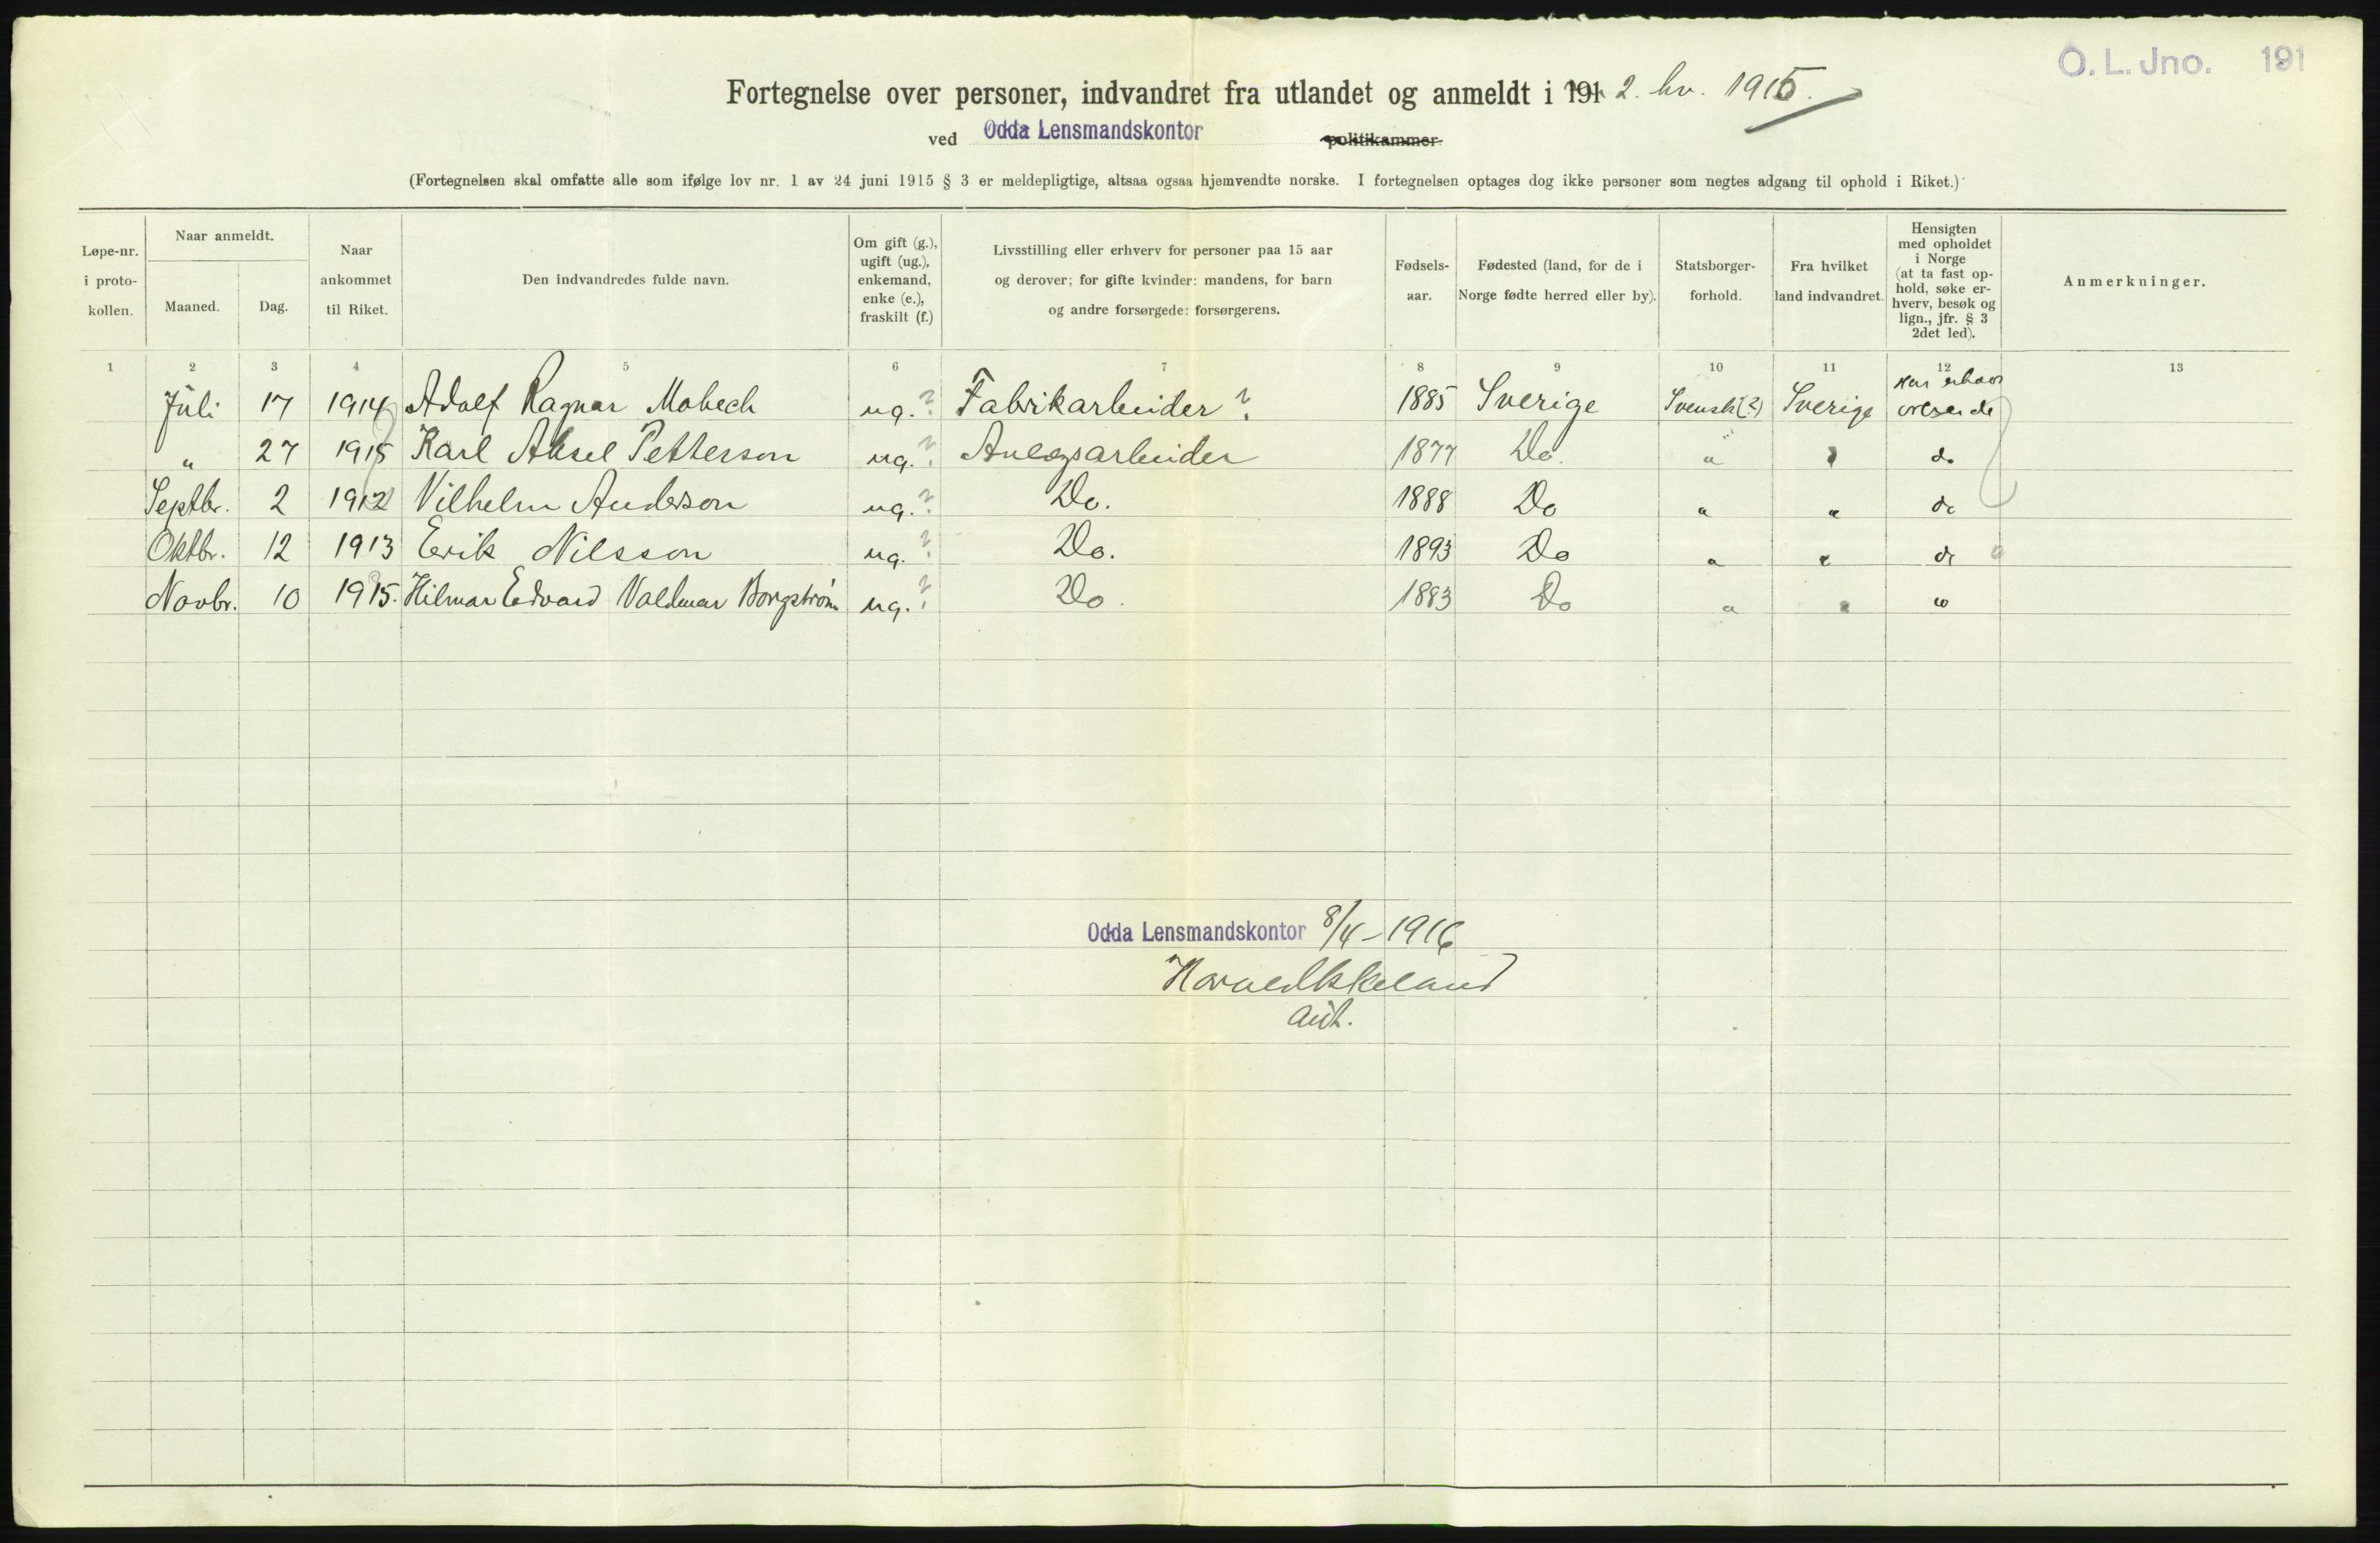 O. L. Jno. 191
Fortegnelse over personer, indvandret fra utlandet og anmeldt i 191 2. hv. 1915.
ved Odda Lensmandskontor politikammer.
(Fortegnelsen skal omfatte alle som ifølge lov nr. 1 av 24 juni 1915 § 3 er meldepligtige, altsaa ogsaa hjemvendte norske. I fortegnelsen optages dog ikke personer som negtes adgang til ophold i Riket.)
Løpe-nr.
i proto-
kollen.
Naar anmeldt.
Maaned.
Dag.
Naar
ankommet
til Riket.
Den indvandredes fulde navn.
Om gift (g.),
ugift (ug.),
enkemand,
enke (e.),
fraskilt (f.)
Livsstilling eller erhverv for personer paa 15 aar
og derover; for gifte kvinder: mandens, for barn
og andre forsørgede: forsørgerens.
Fødsels-
aar.
Fødested (land, for de i
Norge fødte herred eller by).
Statsborger-
forhold.
Fra hvilket
land indvandret.
Hensigten
med opholdet
i Norge
(at ta fast op-
hold, søke er-
hverv, besøk og
lign., jfr. § 3
2det led).
Anmerkninger.
1 2 3 4 5 6 7 8 9 10 11 12 13
Juli 17 1914 Adolf Ragnar Mobech ug. ? Fabrikarbeider ? 1885 Sverige Svensk (?) Sverige
" 27 1915 Karl Aksel Petterson ug. ? Anlægsarbeider 1877 Do. " " do
Septbr. 2 1912 Vilhelm Anderson ug. ? Do. 1888 Do " " do
Oktbr. 12 1913 Erik Nilsson ug. ? Do. 1893 Do " " do
Novbr. 10 1915. Hilmar Edvard Valdmar Borgstrøm ug. ? Do. 1883 Do " " "
Odda Lensmandskontor 8/4-1916